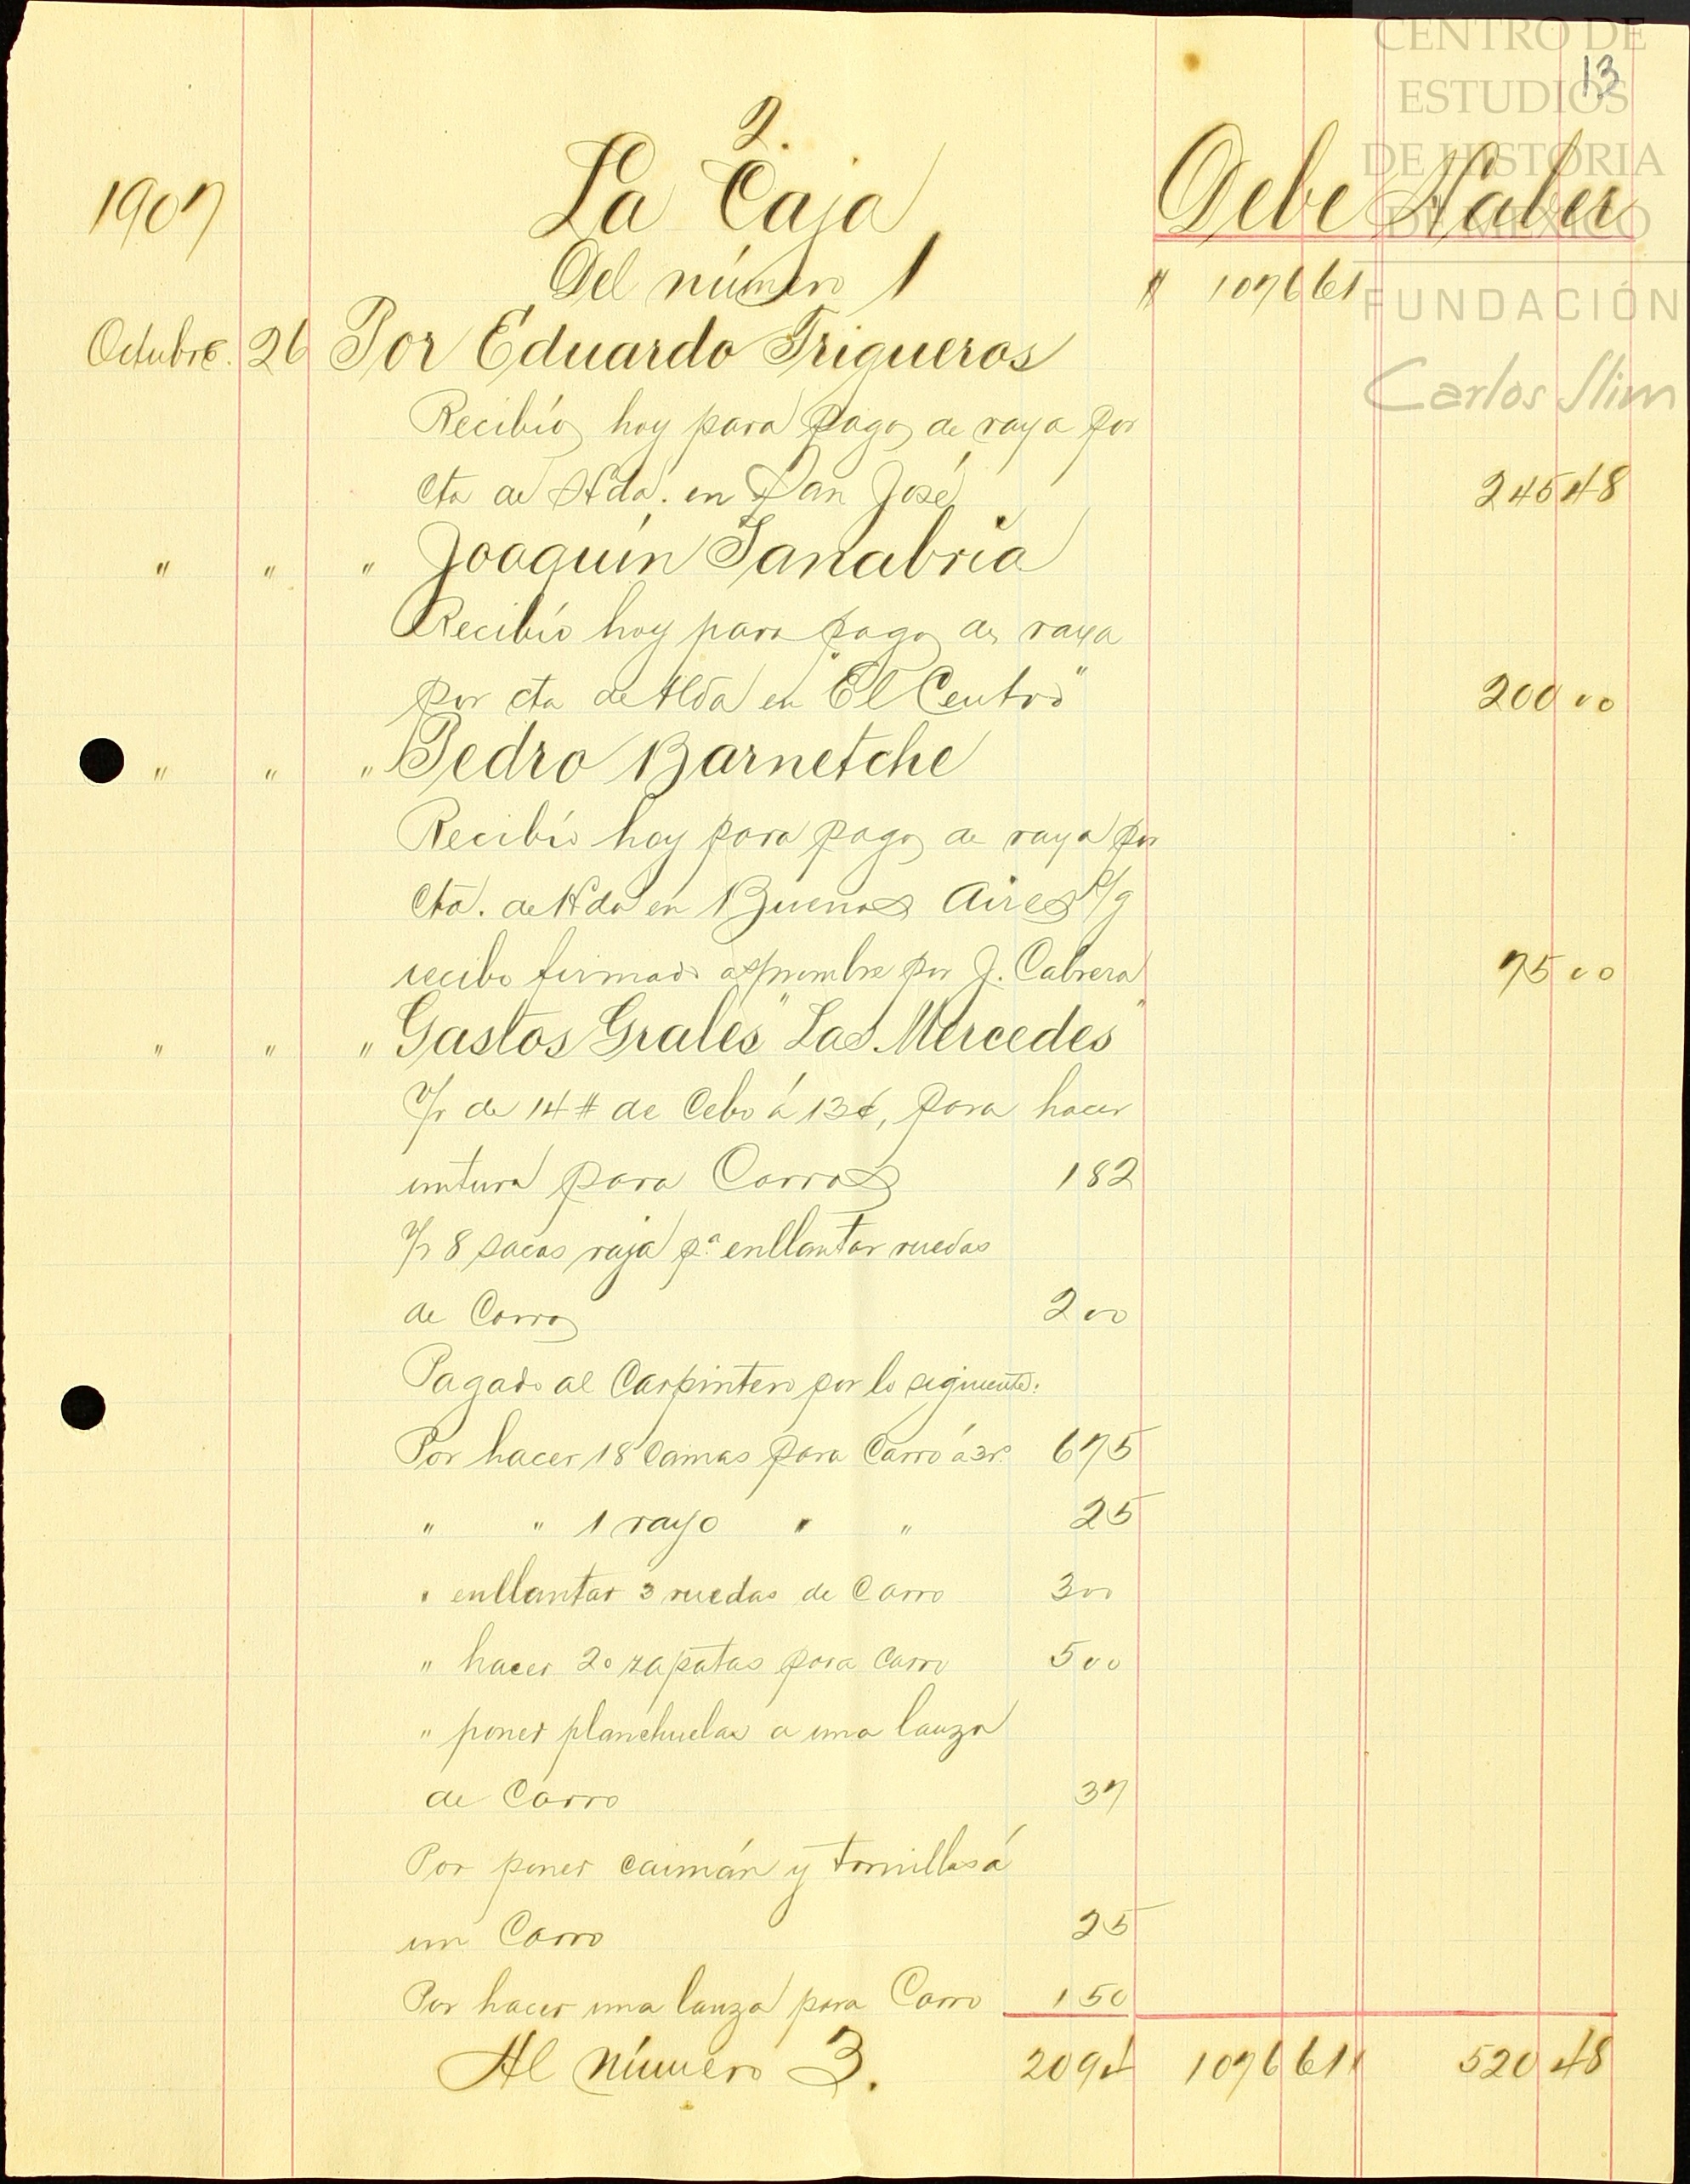 CENTRO DE
ESTUDIOS
DE HISTORIA
DE MÉXICO
FUNDACIÓN
Carlos Slim
13
2.
1907 La Caja Debe Haber
Del número 1 $ 1076 61
Octubre. 26 Por Eduardo Trigueros
Recibío hoy para pago de raya por
cta de Hda. en San José 245 48
" " " Joaquín Sanabria
Recibío hoy para pago de raya
por cta de Hda en "El Centro" 200 00
" " " Pedro Barnetche
Recibío hoy para pago de raya por
cta. de Hda en Buenos Aires s/g
recibo firmado a s/nombre por J. Cabrera 75 00
" " " Gastos Grales "Las Mercedes"
V/r de 14 # de Cebo á 13¢, para hacer
untura para Carros 1 82
V/r 8 sacas raja pª enllantar ruedas
de Carro 2 00
Pagado al Carpintero por lo siguiente:
Por hacer 18 Camas para Carro á 3 r. 6 75
" " 1 rayo " " 25
" enllantar 3 ruedas de Carro 3 00
" hacer 20 zapatas para Carro 5 00
" poner planchuelas a una lanza
de Carro 37
Por poner caimán y tornillos á
un Carro 25
Por hacer una lanza para Carro 1 50
Al número 3. 20 94 1076 61 520 48